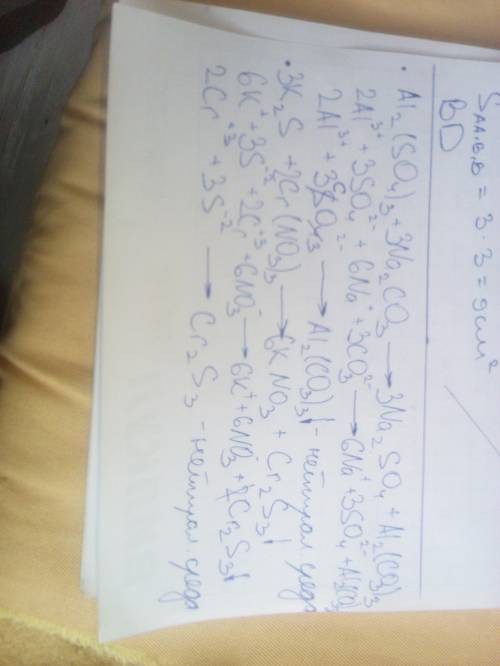 S AA₁B₁B = 3 · 3 = 9 cm²
BD
• Al₂(SO₄)₃ + 3Na₂CO₃ → 3Na₂SO₄ + Al₂(CO₃)₃
2Al³⁺ + 3SO₄²⁻ + 6Na⁺ + 3CO₃²⁻ → 6Na⁺ + 3SO₄²⁻ + Al₂(CO₃)₃
2Al³⁺ + 3CO₃²⁻ → Al₂(CO₃)₃↓ - нейтрал. среда
• 3K₂S + 2Cr(NO₃)₃ → 6KNO₃ + Cr₂S₃↓
6K⁺ + 3S⁻² + 2Cr⁺³ + 6NO₃⁻ → 6K⁺ + 6NO₃⁻ + Cr₂S₃↓
2Cr⁺³ + 3S⁻² → Cr₂S₃ - нейтрал. среда